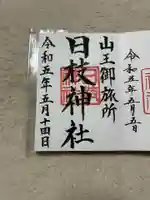 令和五年五月五日
山王御旅所
日枝神社
令和五年五月十四日